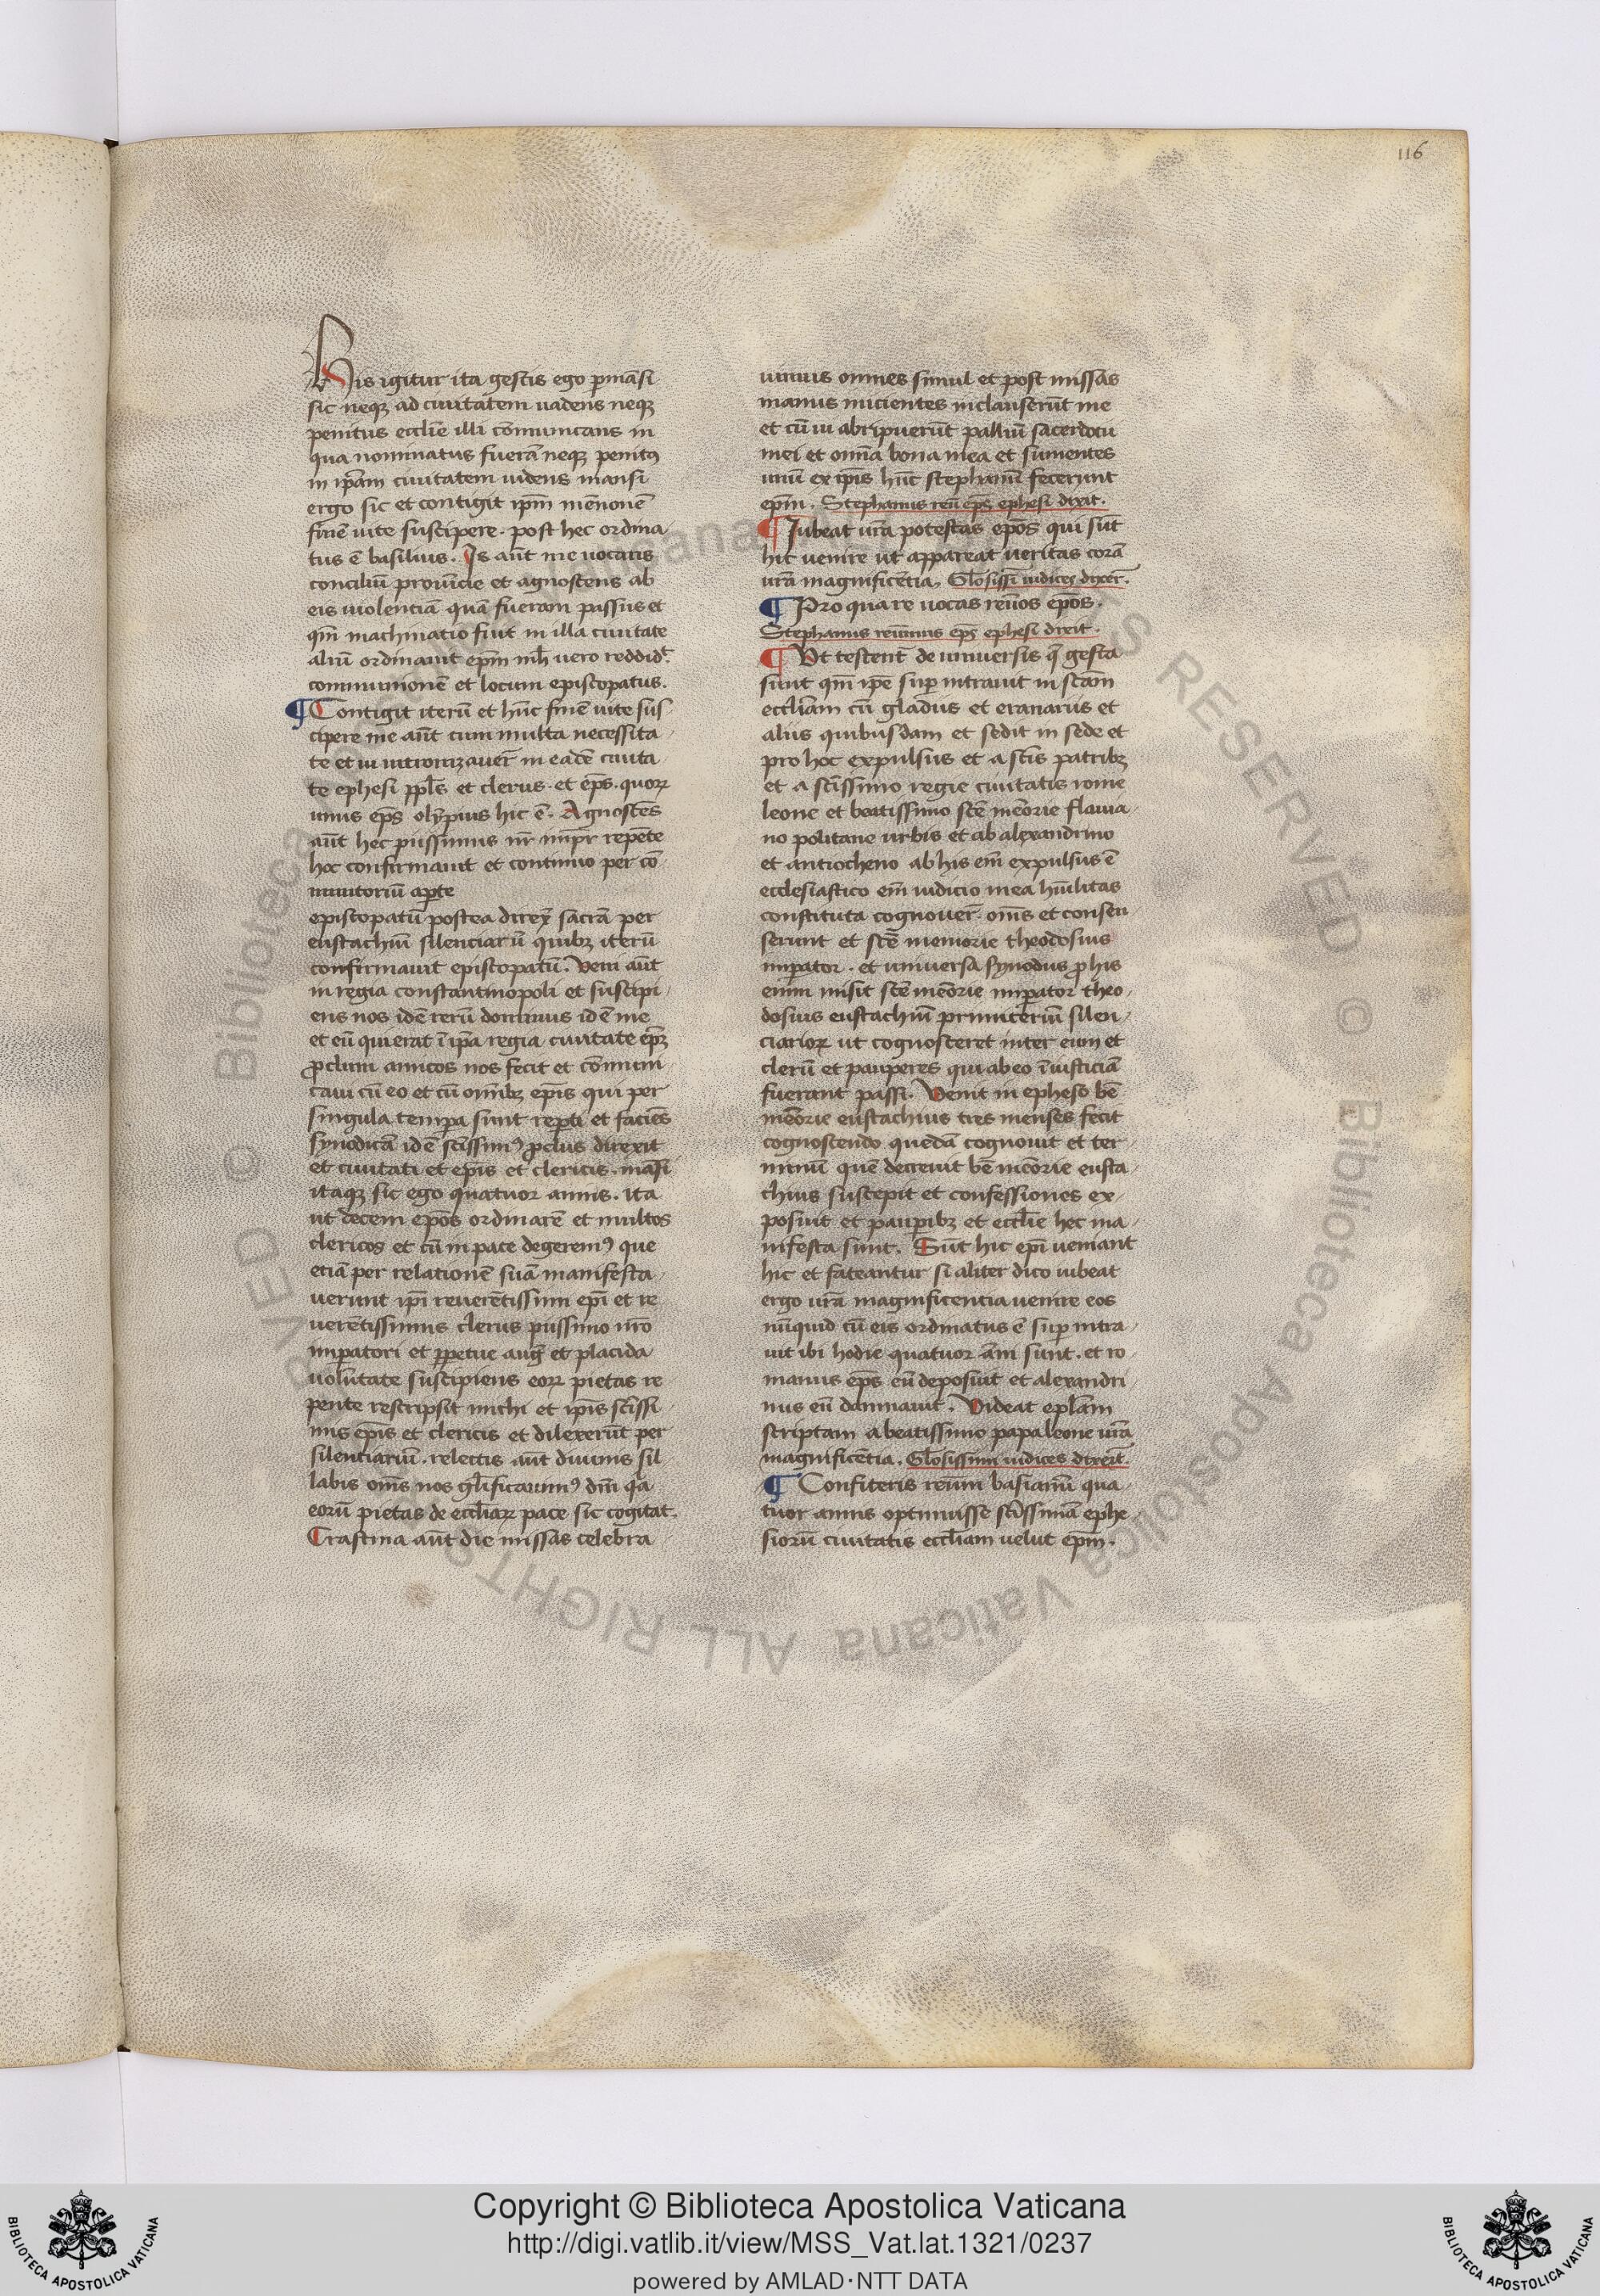 116
His igitur ita gestis ego p̄māsi
sic neqꝫ ad ciuitatem uadens neqꝫ
penitus eccl̄ie illi cōmunicans in
qua nominatus fuerā neqꝫ penitꝰ
in ip̄am ciuitatem uidens mansi
ergo sic et contigit ip̄m mēnonē
finē uite suscipere . post hec ordina
tus ē basilius . Is aūt me uocatis
conciliū prouīcie et agnoscens ab
eis uiolenciā quā fueram passus et
qm̄ machinatio fiut in illa ciuitate
aliū ordinauit ep̄m mh̄ uero reddidt̄
communionē et locum episcopatus .
¶ Contigit iterū et hūc finē uite sus
cipere me aūt cum multa necessita
te et ui introniꝫauer̄ in eadē ciuita
te ephesi pp̄ls et clerus . et ep̄s . quoꝝ
unus ep̄s olympius hic ē . Agnoscēs
aūt hec piissimus nr̄ imp̄r repēte
hoc confirmauit et continuo per cō
munitoriū ap̄te
episcopatū postea direx̄ sacrā per
eustachiū silenciariū quibꝫ iterū
confirmauit episcopatū . Veni aūt
in regia constantinopoli et suscipi
ens nos idē rerū dominus idē me
et eū qui erat ī ip̄a regia ciuitate ep̄ꝫ
p̄clum amicos nos fecit et cōmuni
caui cū eo et cū om̄ibꝫ ep̄is qui per
singula temp̄a sunt rep̄ti et faciēs
synodicā idē sc̄issimꝰ p̄clus direxit
et ciuitati et ep̄is et clericis . māsi
itaqꝫ sic ego quatuor annis . ita
ut decem ep̄os ordinarē et multos
clericos et cū in pace degeremꝰ que
etiā per relationē suā manifesta
uerunt ip̄i reuerētissimi ep̄i et re
uerētissimus clerus piissimo nr̄o
imp̄atori et p̄petue auḡ et placida
uolūtate suscipiens eoꝝ pietas re
pente rescripsit michi et ip̄is sc̄issi
mis ep̄is et clericis et dilexerūt per
silentiariū . relectis aūt diuinis sil
labis om̄s nos gl̄ificauimꝰ dm̄ qā
eorū pietas de eccl̄iaꝝ pace sic cogitat .
Crastina aūt die missas celebra
uimus omnes simul et post missas
manus inicientes inclauserūt me
et cū ui abripuerūt palliū sacerdocii
mei et om̄ia bona mea et sumentes
unū ex ip̄is hūc stephanū fecerunt
ep̄m . Stephanus reū ep̄s ephesi dixit .
¶ Iubeat ur̄a potestas ep̄os qui sūt
hic uenire ut appareat ueritas corā
ur̄a magnificētia , Gl̄osissī iudices dixer̄ .
¶ Pro qua re uocas reūos ep̄os .
Stephanus reuīmus ep̄s ephesi dixit .
¶ Vt testent̄ de uniuersis q̄ gesta
sunt qm̄ ip̄e sup̄ intrauit in sc̄am
eccl̄iam cū gladiis et eranariis et
aliis quibusdam et sedit in sede et
pro hoc expulsus et a sc̄is patribꝫ
et a sc̄issimo regie ciuitatis rome
leone et beatissimo sc̄e mēorie flauia
no politane urbis et ab alexandrino
et antiocheno ab his em̄ expulsus ē
ecclesiastico em̄ iudicio mea hūilitas
constituta cognouer̄ . om̄s et consen
serunt et sc̄e memorie theodosius
imp̄ator . et uniuersa synodus p̄ his
enim misit sc̄e mēorie imp̄ator theo
dosius eustachiū primiceriū silen
ciarioꝝ ut cognosceret inter eum et
clerū et pauperes qui ab eo īiusticiā
fuerant passi . Venit in epheso bē
mēorie eustachius tres menses fecit
cognoscendo quedā cognouit et ter
minū quē decreuit bē mēorie eusta
chius suscepit et confessiones ex
posuit et paup̄ibꝫ et eccl̄ie hec ma
nifesta sunt . Sūt hic ep̄i ueniant
hic et fateantur si aliter dico iubeat
ergo ur̄a magnificentia uenire eos
nūquid cū eis ordinatus ē sup̄ intra
uit ibi hodie quatuor ām sunt . et ro
manus ep̄s eū deposuit et alexandri
nus eū damnauit . Videat epl̄am
scriptam a beatissimo papa leone ur̄a
magnificētia . Gl̄osissimi iudices dixer̄t .
¶ Confiteris reūm basianū qua
tuor annis optinuisse sc̄issimā ephe
siorū ciuitatis eccl̄iam uelut ep̄m .
Copyright © Biblioteca Apostolica Vaticana
http://digi.vatlib.it/view/MSS_Vat.lat.1321/0237
powered by AMLAD·NTT DATA
BIBLIOTECA APOSTOLICA VATICANA
BIBLIOTECA APOSTOLICA VATICANA
© Biblioteca Apostolica Vaticana ALL RIGHTS RESERVED
© Biblioteca Apostolica Vaticana ALL RIGHTS RESERVED